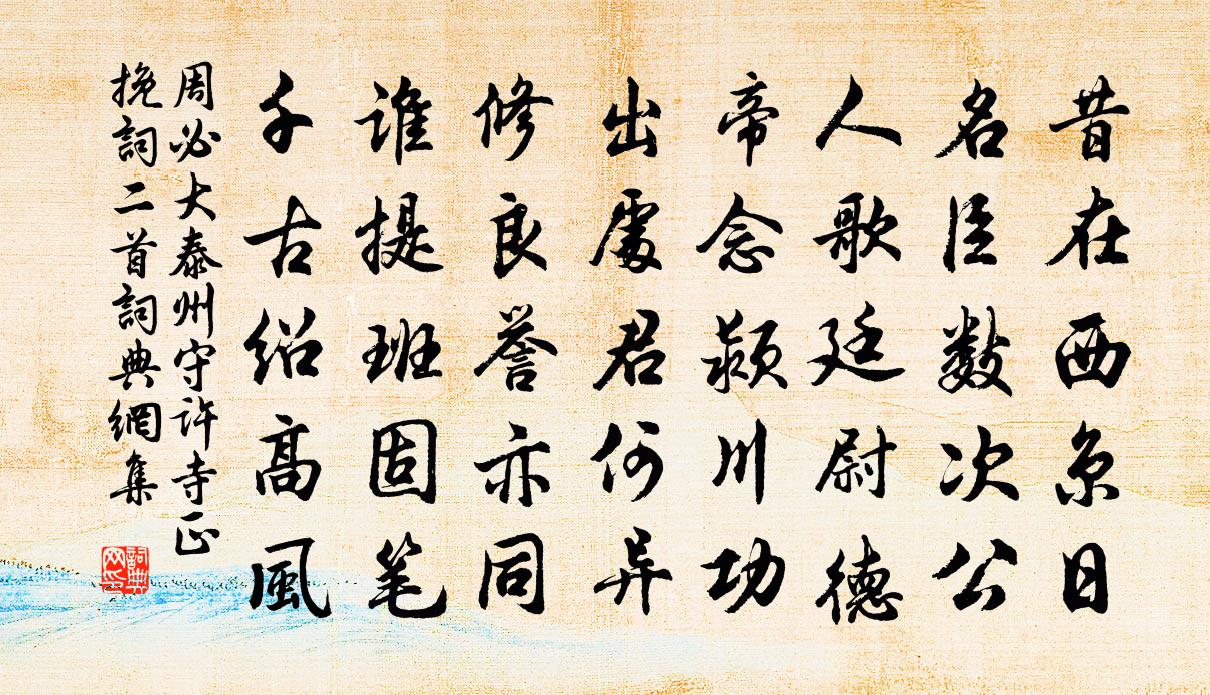 昔在西京日
名臣数次公
人歌廷尉德
帝念颍川功
出處君何异
修良誉亦同
谁提班固笔
千古绍高風
周必大泰州守許寺正
挽詞二首詞典網集
詞典
网印